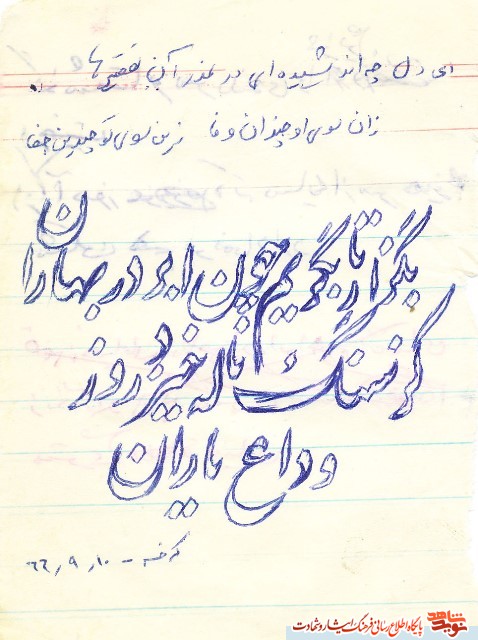 ای دل چه اندیشیده‌ای در عذر آن تقصیرها
زان سوی او چندان وفا زین سوی تو چندین جفا
بگذار تا بگریم چون ابر در بهاران
کز سنگ ناله خیزد روز
وداع یاران
۶۶٫۹٫۱۰
پایگاه اطلاع رسانی فرهنگ ایثار و شهادت
نوید شاهد